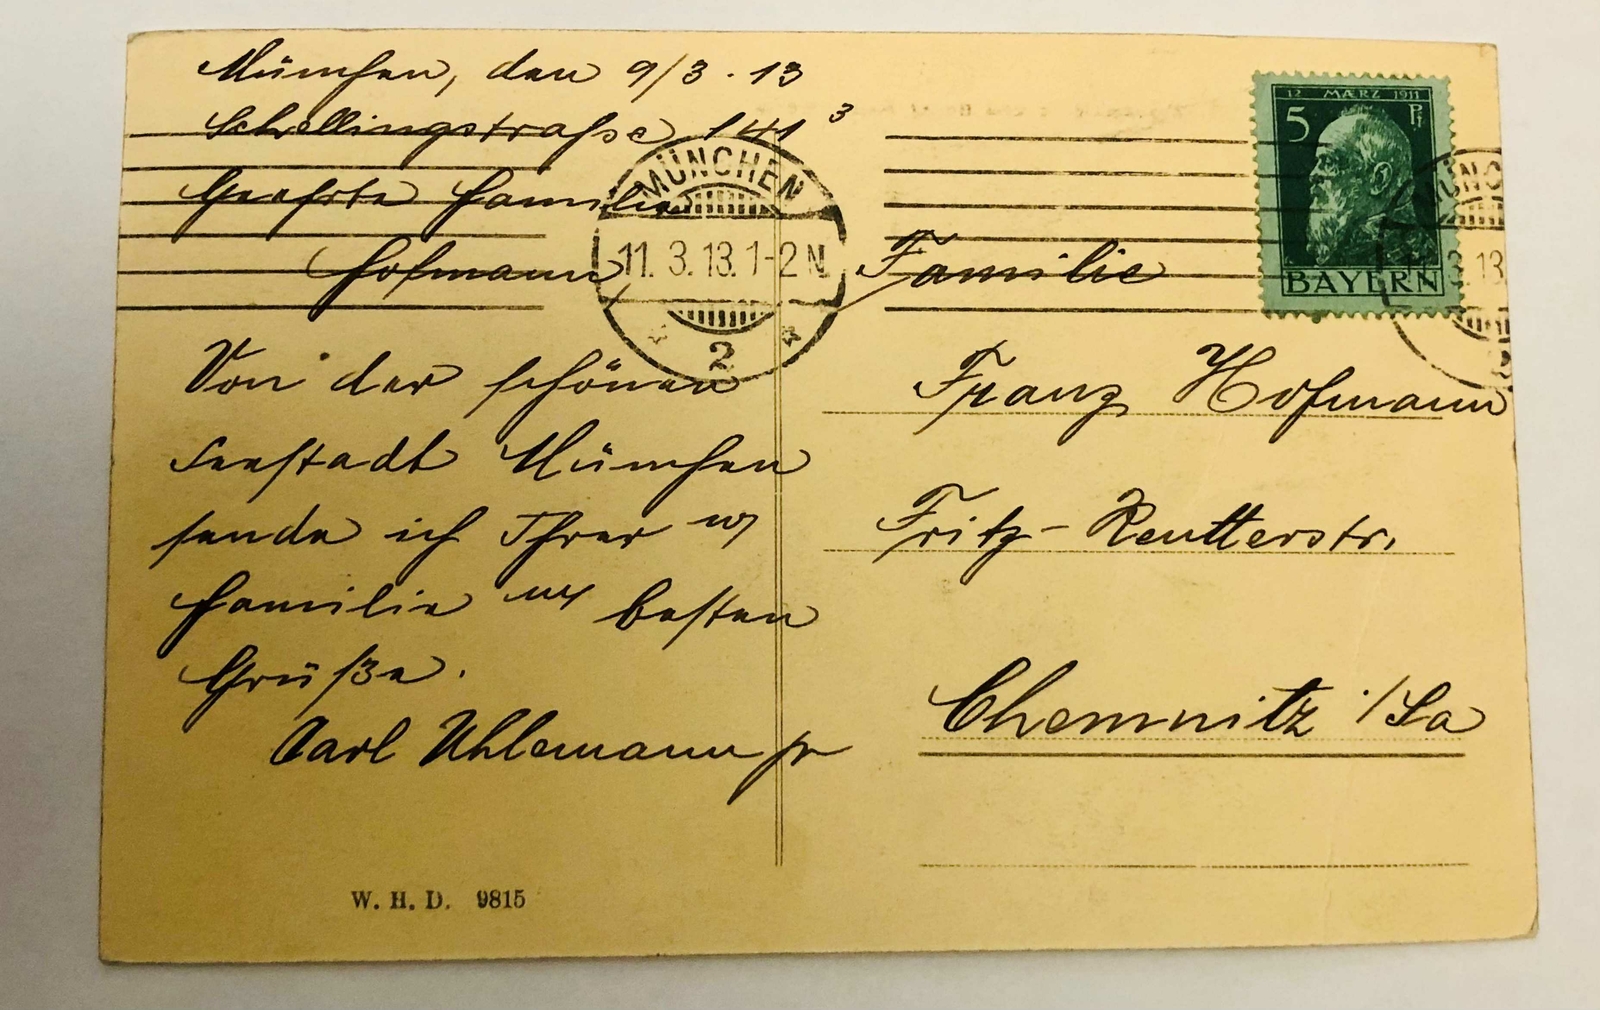 München, den 9/3. 13
Schellingstraße 141 3
Geehrte Familie
Hofmann
Von der schönen
Seestadt München
sende ich Ihrer w
Familie die besten
Grüße.
Carl Uhlemann jr
W. H. D. 9815
MÜNCHEN
11. 3. 13. 1-2 N
2
12 MÆRZ 1911
5 Pf
BAYERN
MÜNC
3. 13.
2
Familie
Franz Hofmann
Fritz-Reutterstr.
Chemnitz i/Sa